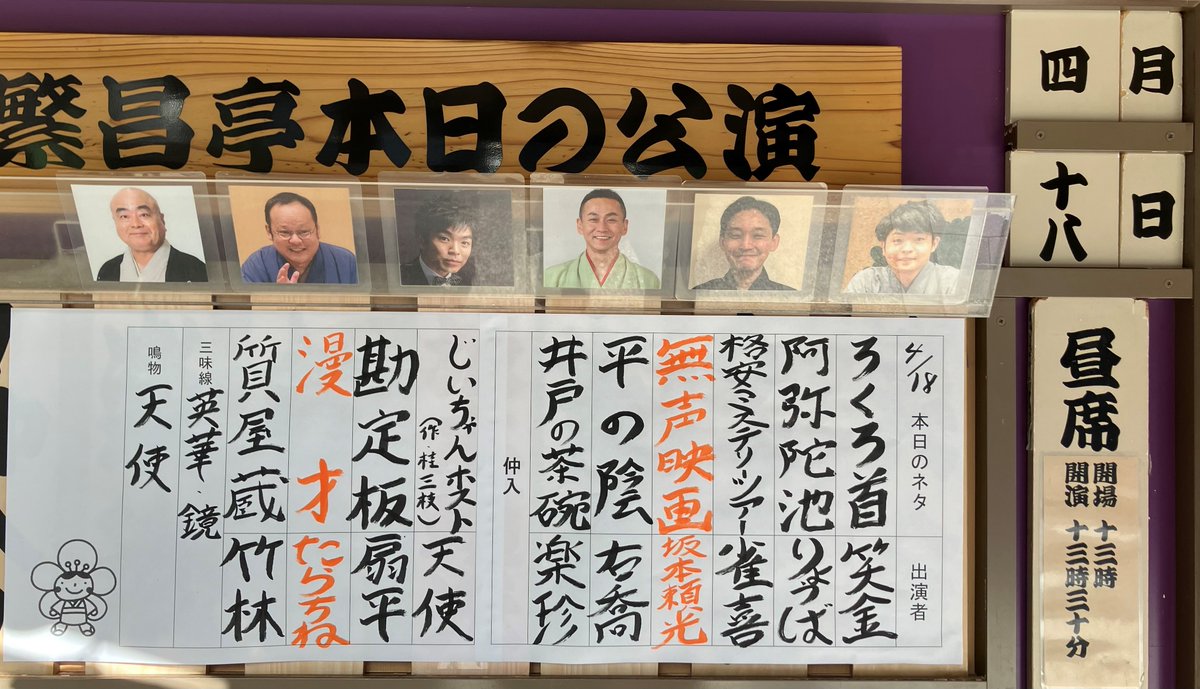 繁昌亭本日の公演
四月
十八日
昼席
開場 十三時
開演 十三時三十分
4/18 本日のネタ 出演者
ろくろ首 笑金
阿弥陀池 りょうば
格安ミステリーツアー 雀喜
無声映画 坂本頼光
平の陰 右喬
井戸の茶碗 楽珍
仲入
じいちゃんホスト 天使
(作・桂三枝)
勘定板 扇平
漫才 たらちね
質屋蔵 竹林
三味線 英華・鏡
鳴物 天使